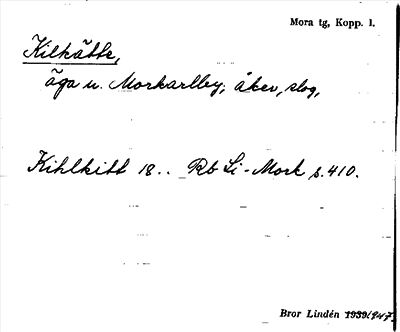 Mora tg, Kopp. l.
Kilkätte,
äga u. Morkarlby; åker, slog,
Kihlkitt 18.. Rb Li-Mork s. 410.
Bror Lindén 1939 1947.